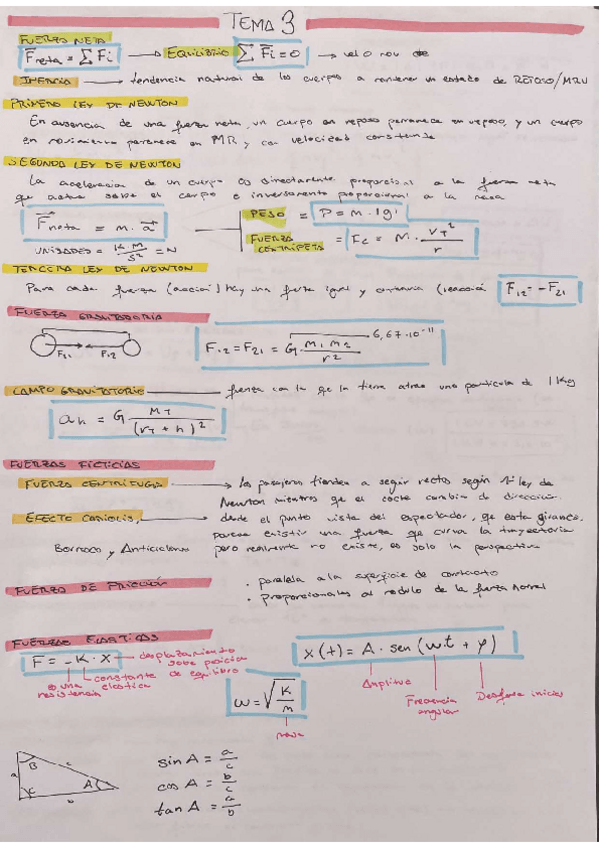 TEMA 3
FUERZA NETA
F neta = ΣFi → Equilibrio ΣFi = 0 → vel 0 nou de
INERCIA → tendencia natural de los cuerpos a mantener un estado de REPOSO/MRU
PRIMERA LEY DE NEWTON
En ausencia de una fuerza neta, un cuerpo en reposo permanece en reposo, y un cuerpo
en movimiento permanece en MR y con velocidad constante
SEGUNDA LEY DE NEWTON
La aceleracion de un cuerpo es directamente proporcional a la fuerza neta
que actua sobre el cuerpo e inversamente proporcional a la masa
F neta = m · a
PESO = P = m · |g|
UNIDADES = K·M/s² = N
FUERZA CENTRIPETA = Fc = M · vT²/r
TERCERA LEY DE NEWTON
Para cada fuerza (accion) hay una fuerza igual y contraria (reacción F12 = -F21
FUERZA GRAVITATORIA
F21 F12
F12 = F21 = G · m1 m2 / r²
6,67·10⁻¹¹
CAMPO GRAVITATORIO fuerza con la qe la tierra atrae una particula de 1Kg
ah = G MT / (rT + h)²
FUERZAS FICTICIAS
FUERZA CENTRIFUGA → los pasajeros tienden a seguir rectos según 1ª ley de
Newton mientras que el coche cambia de direccion.
EFECTO CORIOLIS, desde el punto vista del espectador, qe esta girando,
parece existir una fuerza qe curva la trayectoria
Borrasca y Anticiclones pero realmente no existe, es solo la perspectiva
FUERZA DE FRICCIÓN
· paralela a la superficie de contacto
· proporcionales al modulo de la fuerza normal
FUERZAS ELASTICAS
F = -K · X desplazamiento
sobre posicion
de equilibro
constante
elastica
es una
resistencia
x(t) = A · sen (w·t + φ)
Amplitud
Frecuencia
angular
Desfase inicial
ω = √K/m
masa
a B c A C b
sin A = a/c
cos A = b/c
tan A = a/b